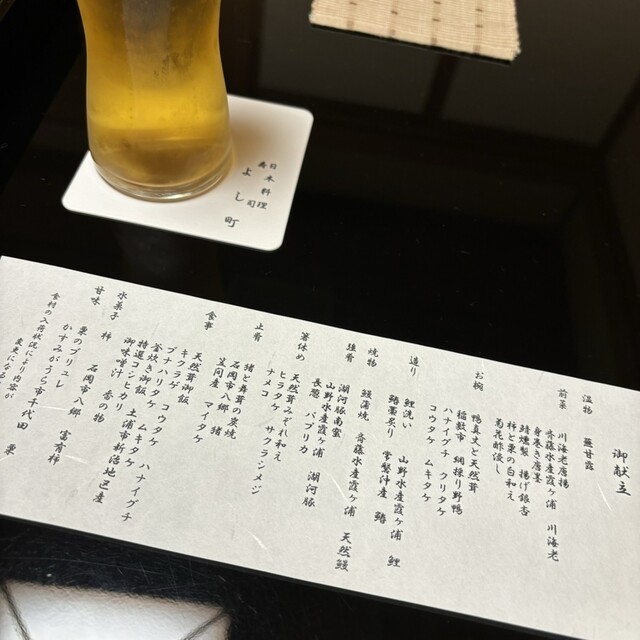 日本料理
寿司
よし町
御献立
温物 蕪甘露
前菜 川海老唐揚
斉藤水産霞ヶ浦 川海老
身巻き唐墨
鯖燻製 揚げ銀杏
柿と栗の白和え
菊花酢浸し
お椀 鴨真丈と天然茸
稲敷市 網採り野鴨
ハナイグチ クリタケ
コウタケ ムキタケ
造り 鯉洗い 山野水産霞ヶ浦 鯉
鰆藁炙り 常磐沖産 鰆
焼物 鰻蒲焼 斉藤水産霞ヶ浦 天然鰻
強肴 湖河豚南蛮
山野水産霞ヶ浦 湖河豚
長葱 パプリカ
箸休め 天然茸みぞれ和え
ヒラタケ サクラシメジ
ナメコ
止肴 猪と舞茸の炭焼
石岡市八郷 猪
笠間産 マイタケ
食事 天然茸御飯
キクラゲ コウタケ
ブナハリタケ ムキタケ ハナイグチ
釜炊き御飯
特選コシヒカリ 土浦市新治地区産
御味噌汁 香の物
水菓子 柿 石岡市八郷 富有柿
甘味 栗のブリュレ
かすみがうら市千代田 栗
食材の入荷状況により内容が
変更になる